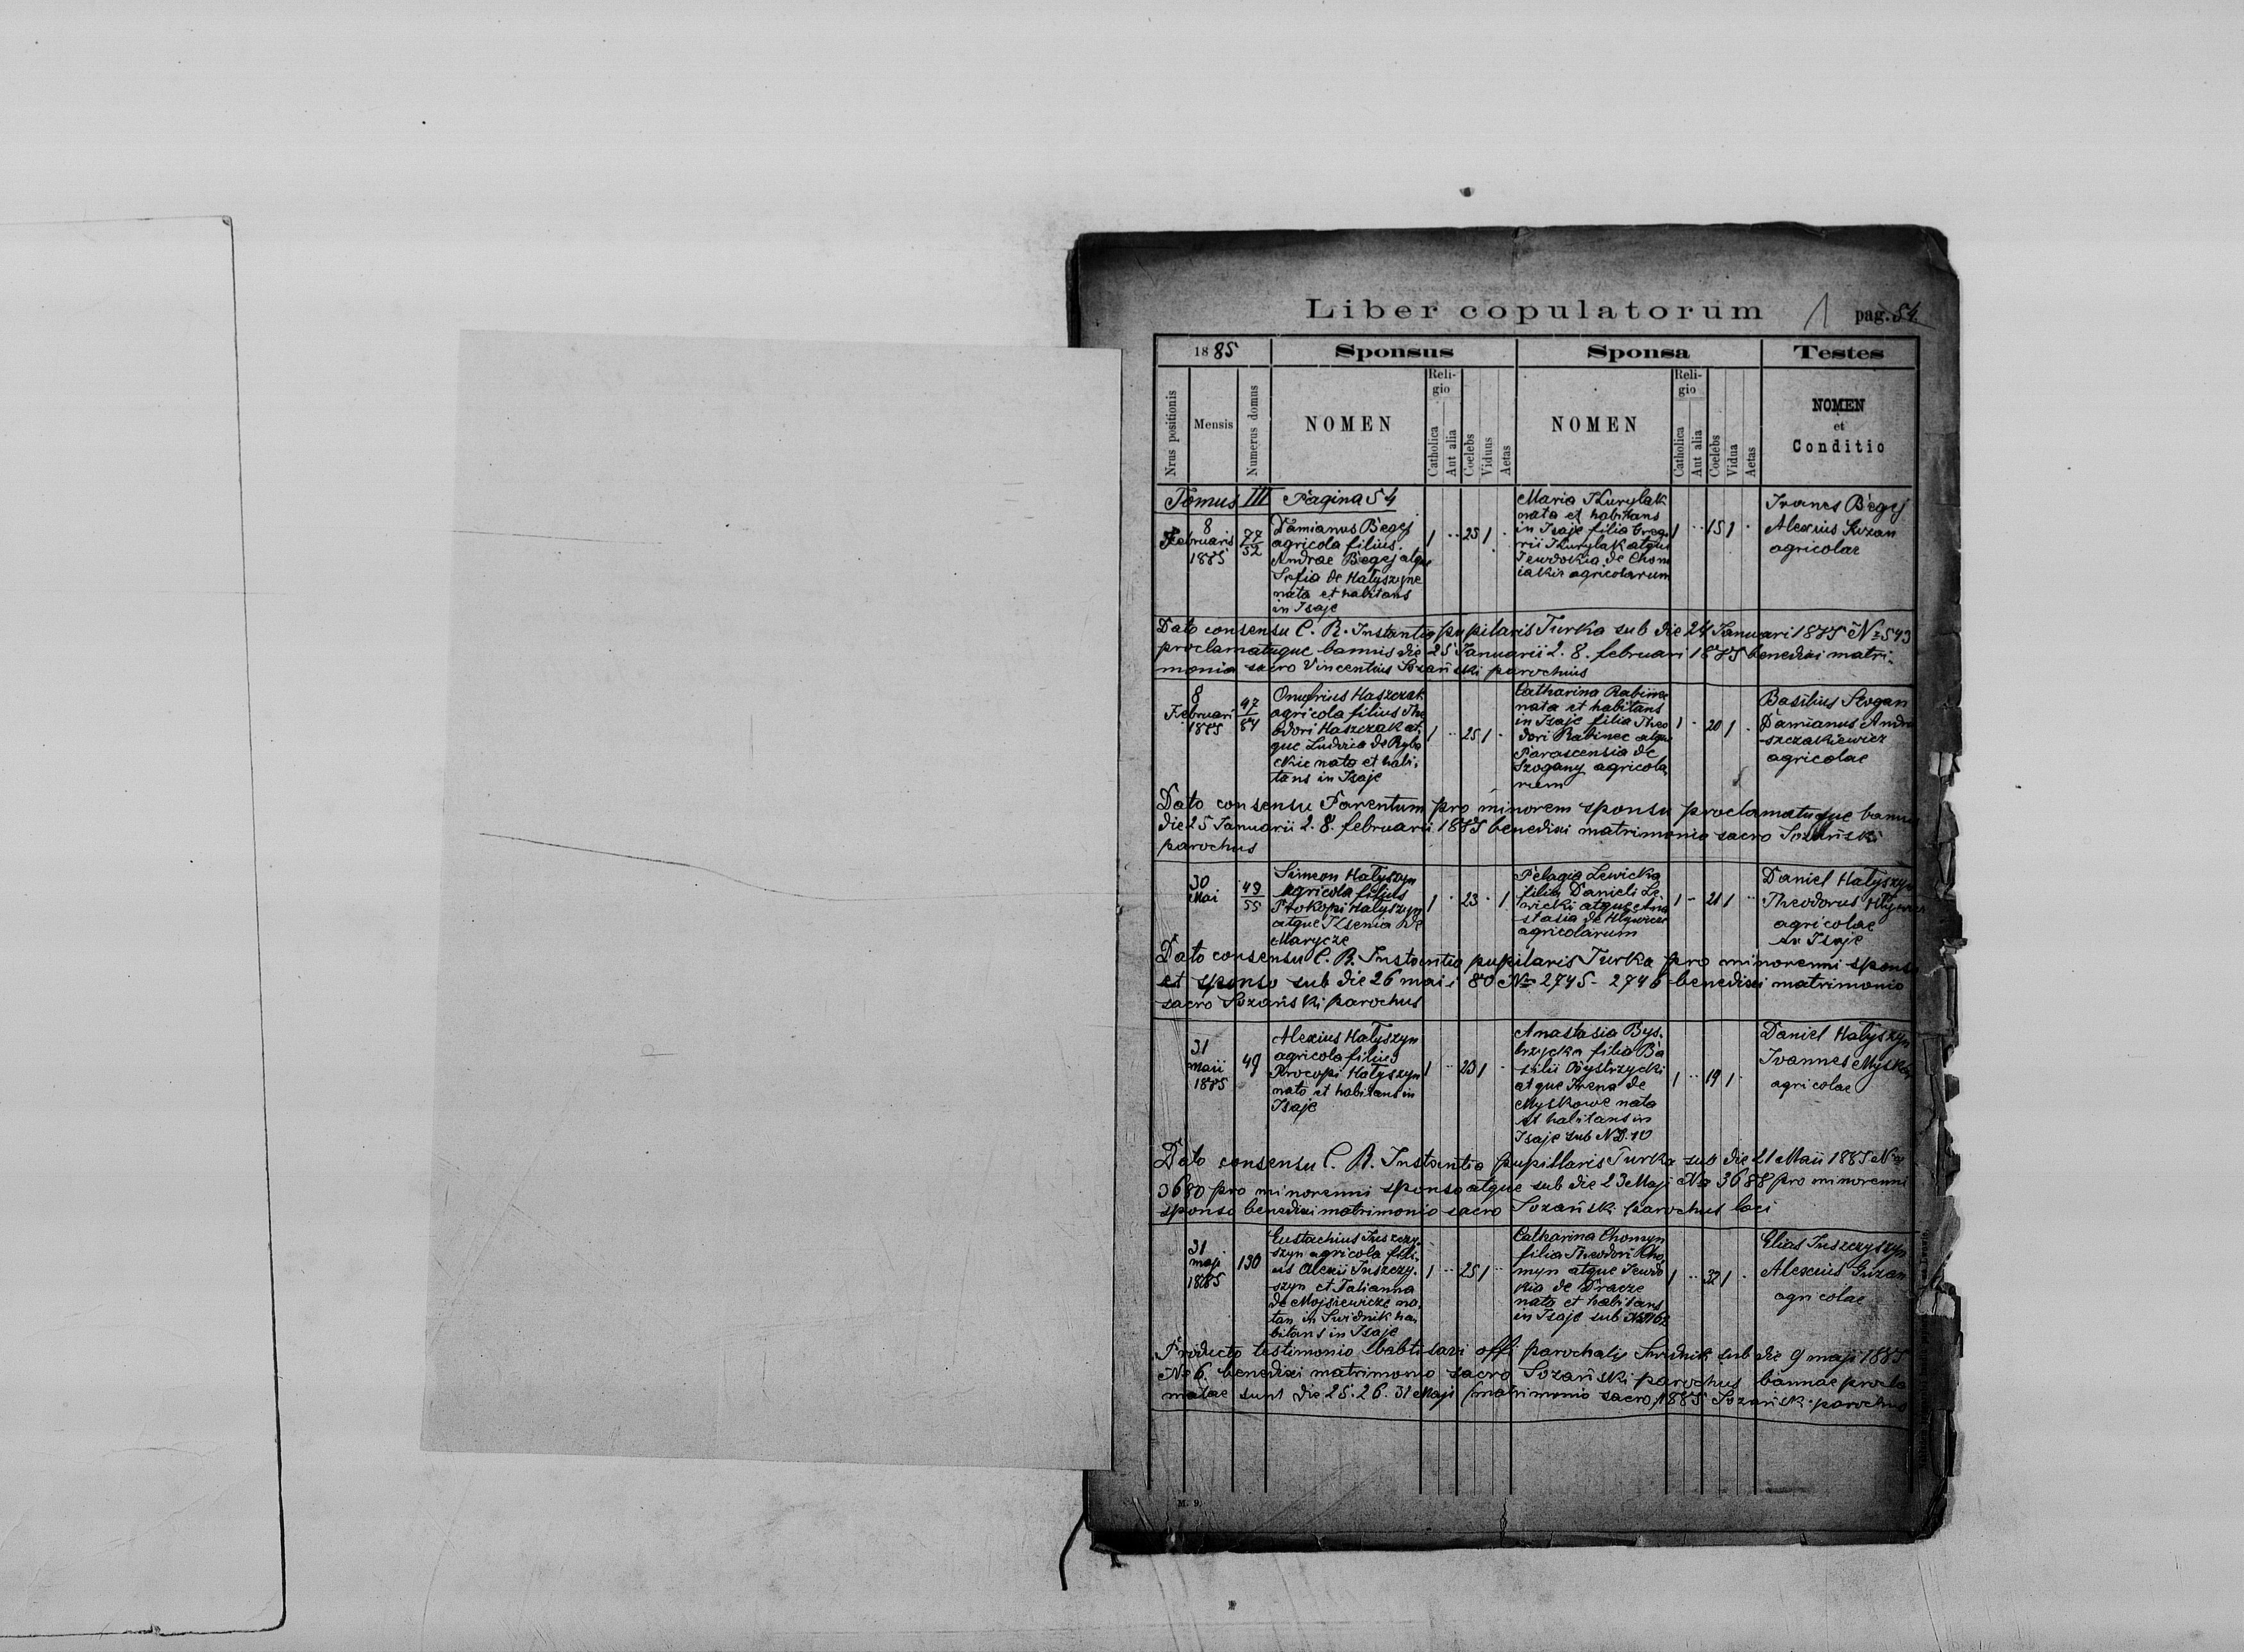 Liber copulatorum 1 pag. 54
1885 Sponsus Sponsa Testes
Nrus positionis Mensis Numerus domus NOMEN Religio Catholica Aut alia Coelebs Viduus Aetas NOMEN Religio Catholica Aut alia Coelebs Vidua Aetas NOMEN et Conditio
Tomus III Pagina 54
8
Februaris
1885
77
52
Damianus Begej
agricola filius
Andrae Begej atque
Sofia de Hałyszyne
nata et habitans
in Isaje
1 25 1
Maria Kurylak
nata et habitans
in Isaje filia Greg
rii Kurylak atque
Teudokia de Chom
iakiv agricolarum
1 15 1
Ivanes Begej
Alexius Suzan
agricolae
Dato consensu C. R. Instantia pupilaris Turka sub die 24 Januari 1885 № 543
proclamatuque bannis die 25 Januarii 2. 8. februari 1885 benedixi matri-
monia sacro Vincentius Sozański parochius
8
Februari
1885
47
84
Onufrius Haszczak
agricola filius The
odori Haszczak at
que Ludvica de Ryba
ckie nato et habi-
tans in Isaje
1 25 1
Catharina Rabinec
nata et habitans
in Isaje filia Theo
dori Rabinec atque
Parascensia de
Szogany agricola
rum
1 20 1
Basilius Szogan
Damianus Andru
szczakiewicz
agricolae
Dato consensu Parentum pro minorem sponsu proclamatuque bannis
die 25 Januarii 2. 8. februarii 1885 benedixi matrimonia sacro Sozański
parochus
30
Mai
49
55
Simeon Hałyszyn
agricola filius
Prokopi Hałyszyn
atque Ksenia de
Marycze
1 23 1
Pelagia Lewicka
filia Danieli Le
wicki atque Ana
stasia de
agricolarum
1 21 1
Daniel Hałyszyn
Theodorus
agricolae
in Isaje
Dato consensu C. R. Instantia pupilaris Turka pro minorenni sponsa
et sponso sub die 26 maii 80 № 2745 - 2746 benedixi matrimonio
sacro Sozański parochus
31
maii
1885
49
Alexius Hałyszyn
agricola filius
Procopi Hałyszyn
nato et habitans in
Isaje
1 23 1
Anastasia Bys-
trzycka filia Ba
silii Bystrzycki
atque Irena de
Myskowe nata
et habitans in
Isaje sub ND. 10
1 19 1
Daniel Hałyszyn
Ivannes Myskow
agricolae
Dato consensu C. R. Instantia pupillaris Turka sub die 21 Maii 1885 Nro
3680 pro minorenni sponso atque sub die 23 Maji Nro 3688 pro minorenni
sponso benedixi matrimonio sacro Sozański parochus loci
31
maji
1885
130
Eustachius Juszczy-
szyn agricola fili-
us Alexii Juszczy-
szyn et Tatianna
de Mojsiewicze na-
tan in Swidnik ha-
bitans in Isaje
1 25 1
Catharina Chomyn
filia Theodori Cho
myn atque Teudo
kia de Dracze
nata et habitans
in Isaje sub ND 62
1 32 1
Elias Juszczyszyn
Alexius Guzan
agricolae
Producto testimonio babtisari offi parochalis Swidnik sub die 9 maji 1885
№ 6 benedixi matrimonio sacro Sozański parochus bannae procla
matae sunt die 25. 26. 31 Maji (matrimonio sacro) 1885 Sozański parochus
M. 9.